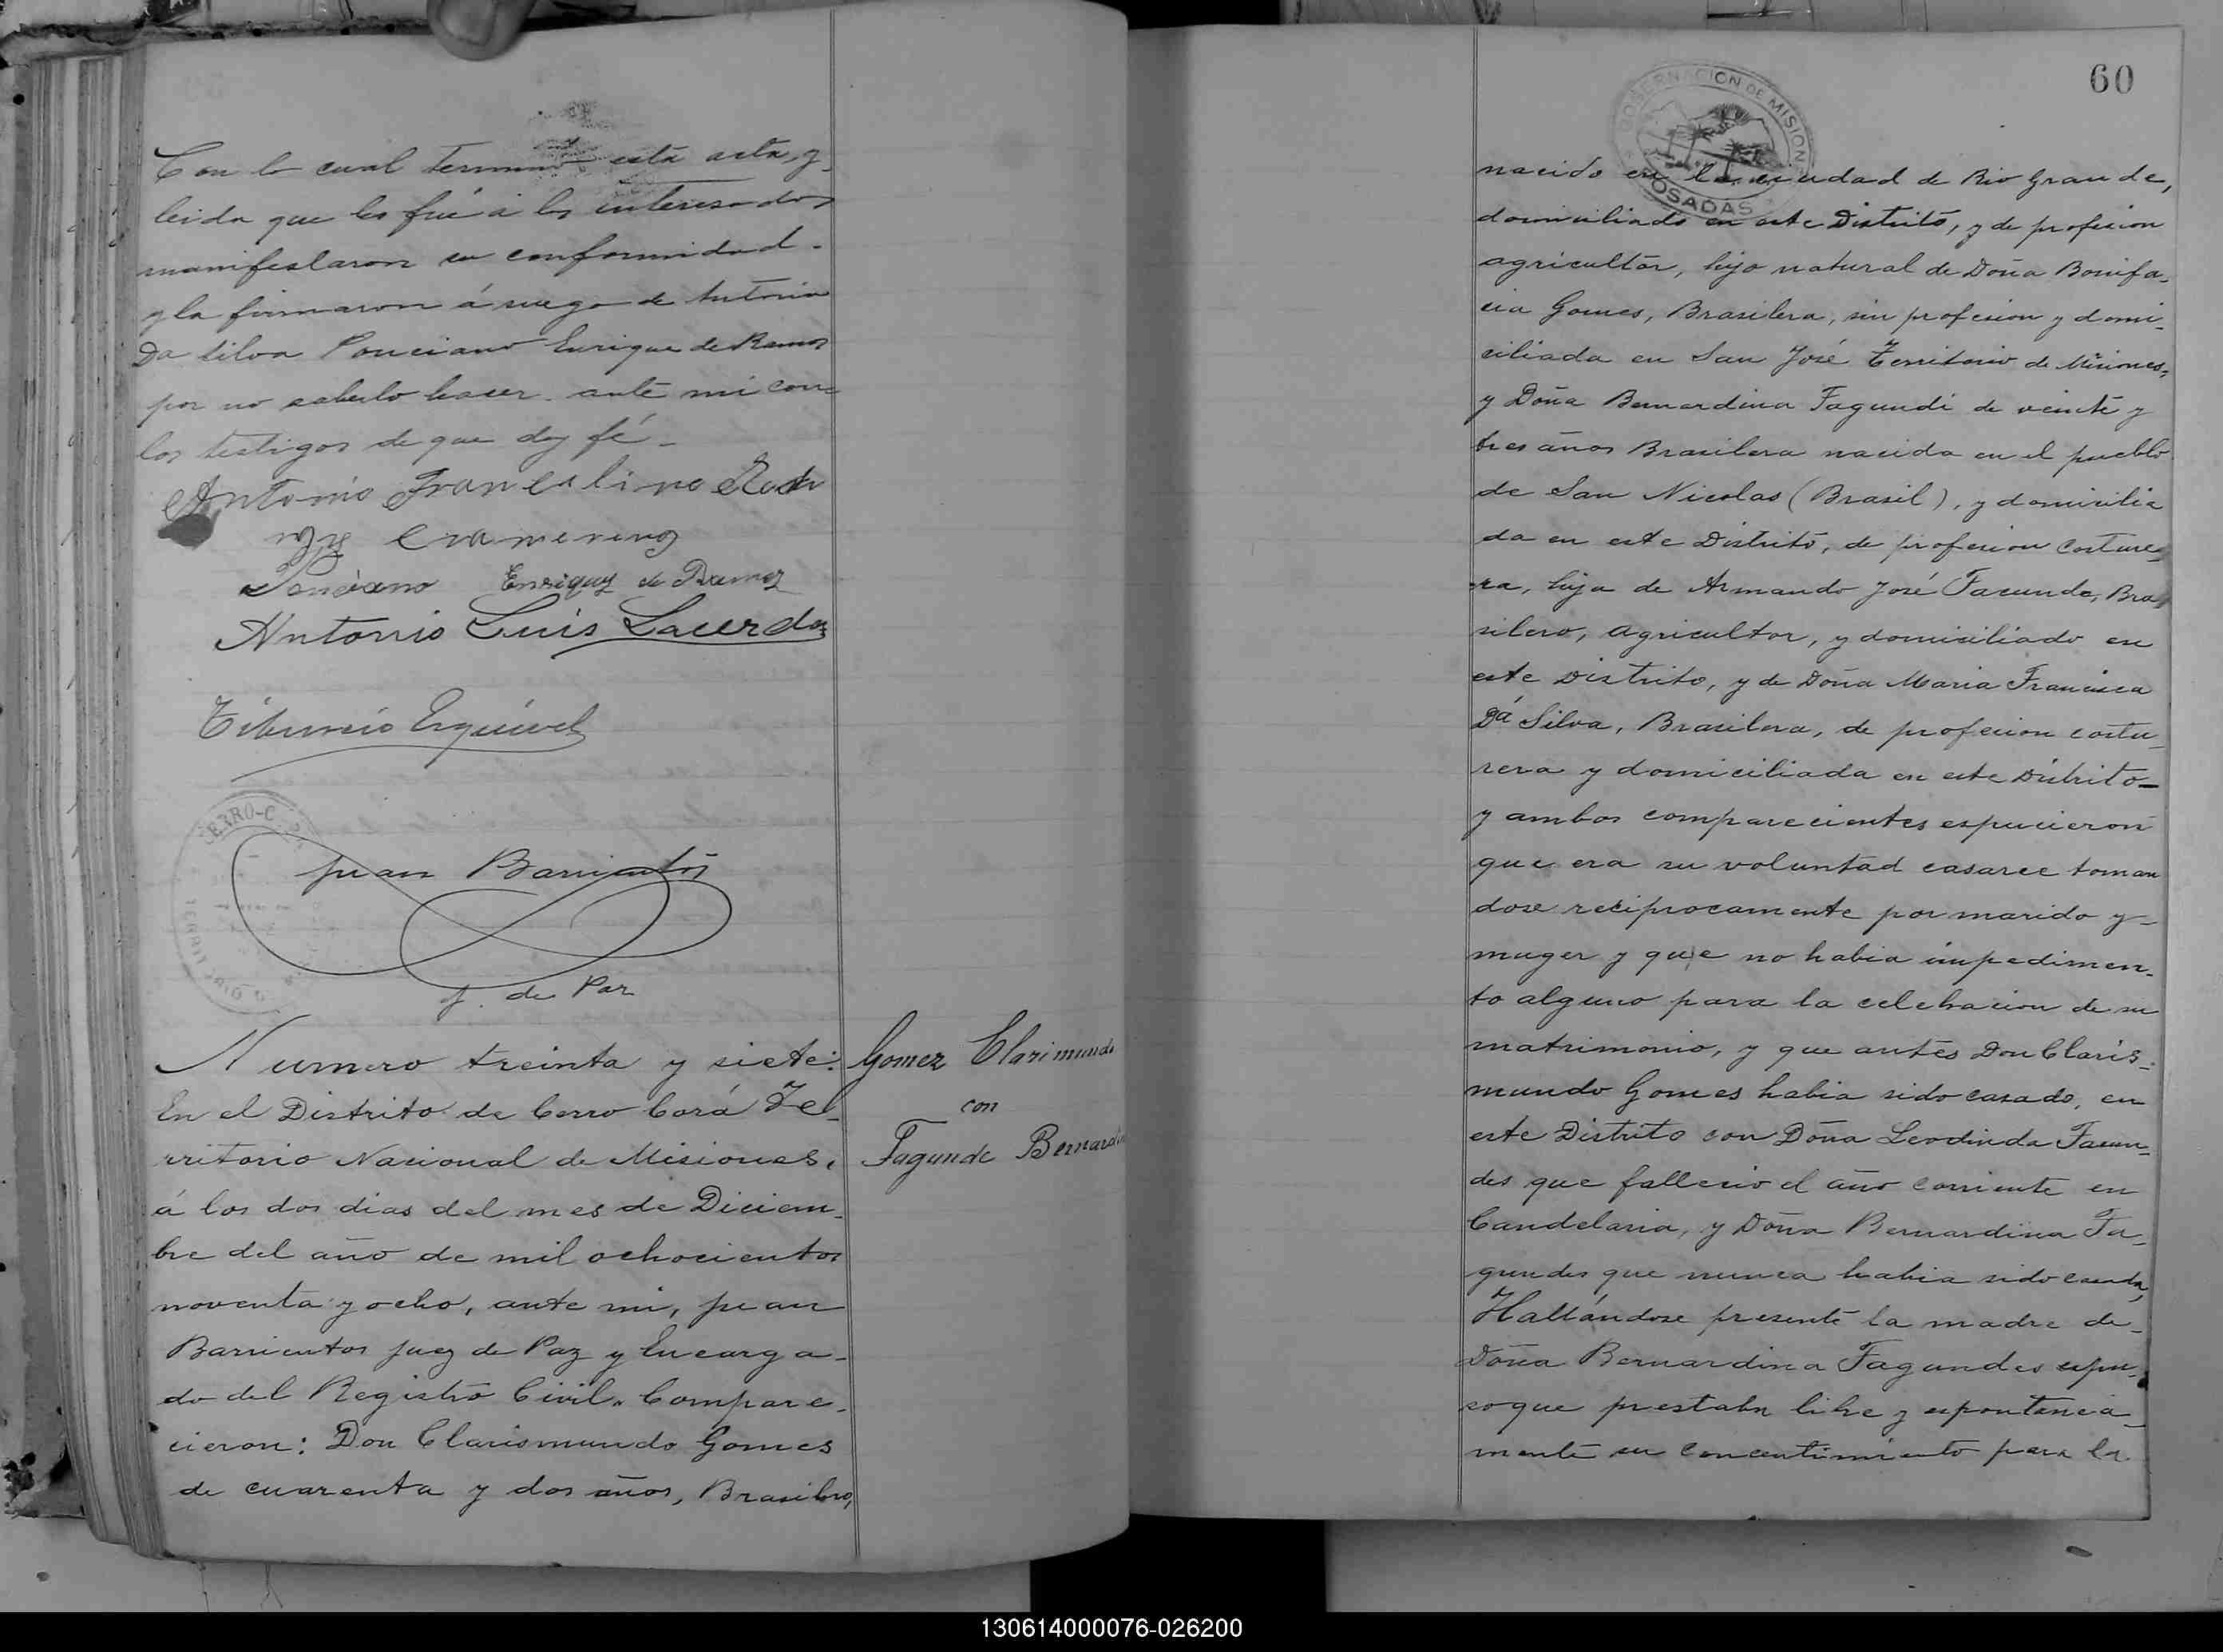 Con lo cual termino esta acta, y
leida que les fué á los interesados
manifestaron su conformidad -
y la firmaron á ruego de Antonio
Da Silva Ponciano Enrique de Ramos
por no saberlo hacer. ante mi con
los testigos de que doy fé -
Antonio
Ponciano Enriquez de Ramoz
Antonio Luis Lacerda
Tiburcio Esquivel
CERRO-C
Juan Barrientos
J. de Paz
Numero treinta y siete:
En el Distrito de Cerro Corá Te-
rritorio Nacional de Misiones,
á los dos dias del mes de Diciem-
bre del año de mil ochocientos
noventa y ocho, ante mi, Juan
Barrientos Juez de Paz y Encarga-
do del Registro Civil. Compare-
cieron: Don Clarismundo Gomes
de cuarenta y dos años, Brasilero,
Gomez Clarimundo
con
Fagunde Bernardina
60
GOBERNACION DE MISIONES
POSADAS
nacido en la ciudad de Rio Grande,
domiciliado en este Distrito, y de profecion
agricultor, hijo natural de Doña Bonifa-
cia Gomes, Brasilera, sin profecion y domi-
ciliada en San José Territorio de Misiones,
y Doña Bernardina Fagundi de veinte y
tres años Brasilera nacida en el pueblo
de San Nicolas (Brasil), y domicilia
da en este Distrito, de profecion costure-
ra, hija de Armando José Facunde, Bra
silero, agricultor, y domiciliado en
este Distrito, y de Doña Maria Francisca
Dá Silva, Brasilera, de profecion costu-
rera y domiciliada en este Distrito -
y ambos comparecientes espucieron
que era su voluntad casarce toman
dose reciprocamente por marido y -
muger y que no habia impedimen-
to alguno para la celebracion de su
matrimonio, y que antes Don Claris-
mundo Gomes habia sido casado, en
este Distrito con Doña Leodinda Facun-
des que fallecio el año corriente en
Candelaria, y Doña Bernardina Fa-
gundes que nunca habia sido casada,
Hallándose presente la madre de -
Doña Bernardina Fagundes espu-
so que prestaba libre y espontanea-
mente su concentimiento para la
130614000076-026200